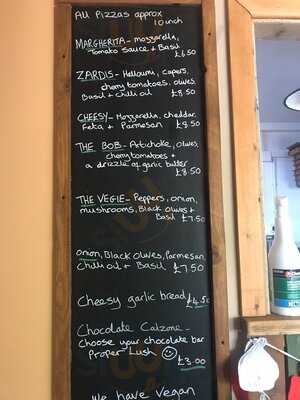 All Pizzas approx
10 inch
MARGHERITA - mozzarella,
Tomato Sauce + Basil
£6.50
ZARDIS - Halloumi, capers,
cherry tomatoes, olives,
Basil + chilli oil £8.50
CHEESY - Mozzarella, cheddar,
Feta + Parmesan £8.50
THE BOB - Artichoke, olives,
cherry tomatoes +
a drizzle of garlic butter
£8.50
THE VEGIE - Peppers, onion,
mushrooms, Black olives +
Basil £7.50
Onion, Black Olives, Parmesan,
Chilli oil + Basil £7.50
Cheesy garlic bread £4.50
Chocolate Calzone -
Choose your chocolate bar
Proper Lush
£3.00
we have vegan